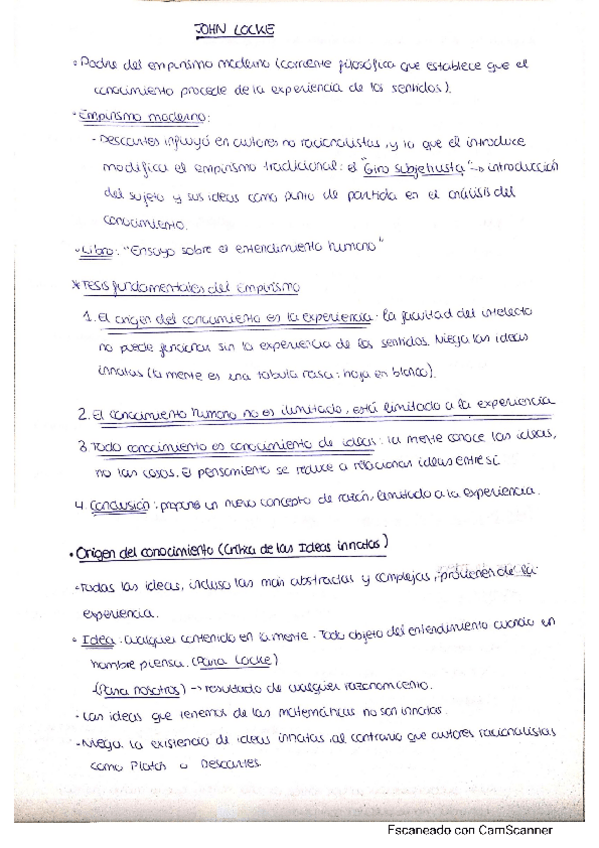 JOHN LOCKE
· Padre del empirismo moderno (corriente filosófica que establece que el
conocimiento procede de la experiencia de los sentidos).
· Empirismo moderno:
- Descartes influyó en autores no racionalistas, y lo que él introduce
modifica el empirismo tradicional: el "Giro subjetivista" -> introducción
del sujeto y sus ideas como punto de partida en el análisis del
conocimiento.
· Libro: "Ensayo sobre el entendimiento humano"
* Tesis fundamentales del empirismo
1. El origen del conocimiento es la experiencia: la facultad del intelecto
no puede funcionar sin la experiencia de los sentidos. Niega las ideas
innatas (la mente es una tabula rasa: hoja en blanco).
2. El conocimiento humano no es ilimitado, está limitado a la experiencia
3. Todo conocimiento es conocimiento de ideas: la mente conoce las ideas,
no las cosas. El pensamiento se reduce a relacionar ideas entre sí.
4. Conclusión: propone un nuevo concepto de razón, limitado a la experiencia.
· Origen del conocimiento (Crítica de las Ideas innatas)
· Todas las ideas, incluso las más abstractas y complejas, provienen de la
experiencia.
· Idea: Cualquier contenido en la mente. Todo objeto del entendimiento cuando un
hombre piensa. (Para Locke)
(Para nosotros) -> resultado de cualquier razonamiento.
· Las ideas que tenemos de las matemáticas no son innatas.
· Niega la existencia de ideas innatas, al contrario que autores racionalistas
como Platón o Descartes.
Escaneado con CamScanner